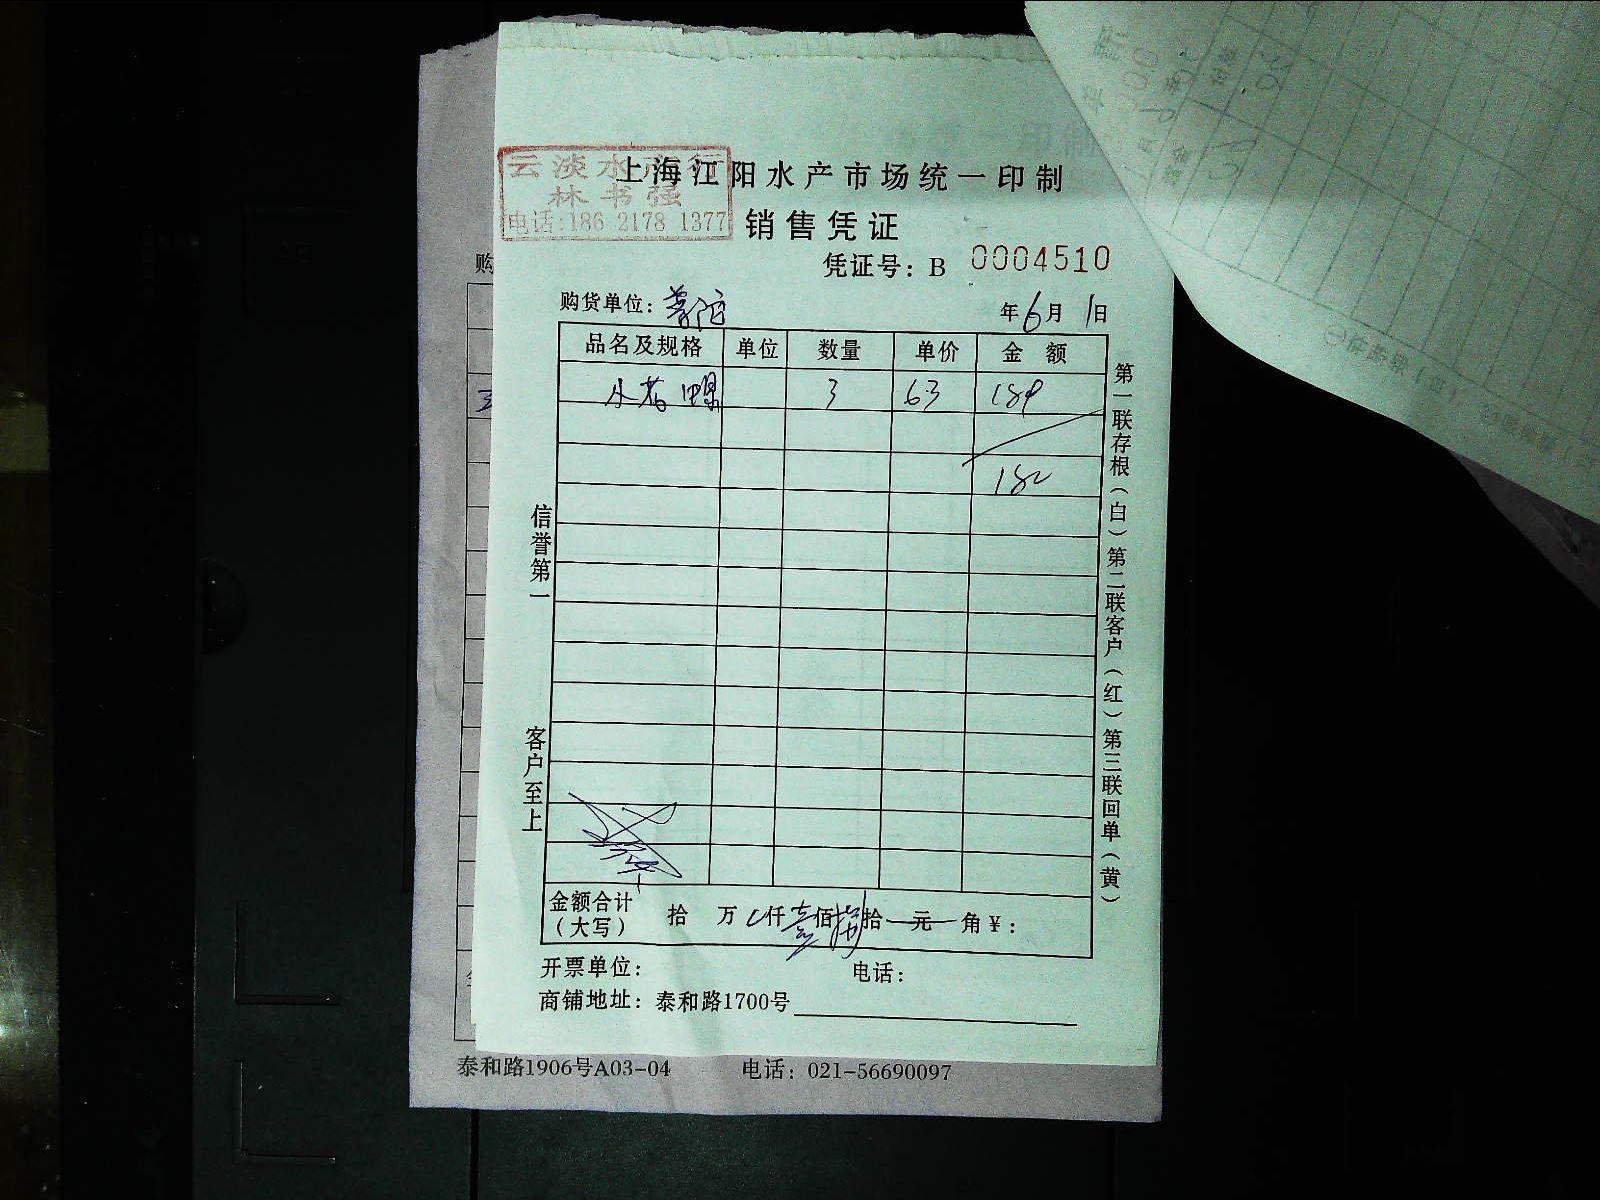 云淡水产行
林书强
电话:186 2178 1377
上海江阳水产市场统一印制
销售凭证
凭证号：B 0004510
购货单位：
年6月1日
品名及规格 单位 数量 单价 金额
3 63 189
信誉第一
客户至上
第一联存根（白）第二联客户（红）第三联回单（黄）
金额合计（大写） 拾 万 仟壹佰捌拾 元 角￥：
开票单位： 电话：
商铺地址：泰和路1700号
购
泰和路1906号A03-04 电话：021-56690097